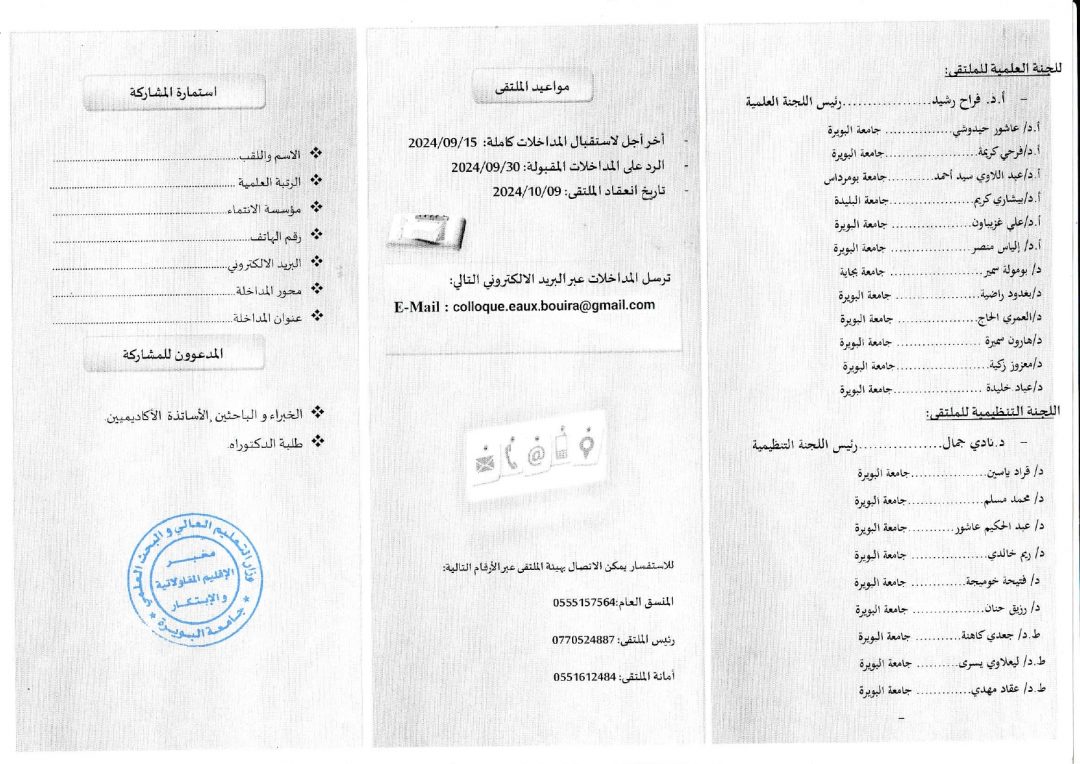 للجنة العلمية للملتقى:
- أ.د. فراح رشيد.................رئيس اللجنة العلمية
أ.د/ عاشور حيدوشي............... جامعة البويرة
أ.د/فرحي كريمة...................جامعة البويرة
أ.د/عبد اللاوي سيد أحمد.........جامعة بومرداس
أ.د/بيشاري كريم.................جامعة البليدة
أ.د/علي غزيباون................جامعة البويرة
أ.د/ إلياس منصر ................جامعة البويرة
د/ بومولة سمير..................جامعة بجاية
د/بغدود راضية...................جامعة البويرة
د/العمري الحاج..................جامعة البويرة
د/هارون سميرة ..................جامعة البويرة
د/معزوز زكية....................جامعة البويرة
د/عباد خليدة ...................جامعة البويرة
اللجنة التنظيمية للملتقى:
- د.نادي جمال.................رئيس اللجنة التنظيمية
د/ قراد ياسين................... جامعة البويرة
د/ محمد مسلم....................جامعة البويرة
د/ عبد الحكيم عاشور............جامعة البويرة
د/ ريم خالدي....................جامعة البويرة
د/ فتيحة خوميجة.................جامعة البويرة
د/ رزيق حنان....................جامعة البويرة
ط.د/ جعدي كاهنة................ جامعة البويرة
ط.د/ ليعلاوي يسرى.............. جامعة البويرة
ط.د/ عقاد مهدي................. جامعة البويرة
-
مواعيد الملتقى
- أخر أجل لاستقبال المداخلات كاملة: 2024/09/15
- الرد على المداخلات المقبولة: 2024/09/30
- تاريخ انعقاد الملتقى: 2024/10/09
ترسل المداخلات عبر البريد الالكتروني التالي:
E-Mail : colloque.eaux.bouira@gmail.com
للاستفسار يمكن الاتصال بهيئة الملتقى عبر الأرقام التالية:
المنسق العام:0555157564
رئيس الملتقى: 0770524887
أمانة الملتقى: 0551612484
استمارة المشاركة
❖ الاسم واللقب........................................
❖ الرتبة العلمية ........................................
❖ مؤسسة الانتماء........................................
❖ رقم الهاتف........................................
❖ البريد الالكتروني........................................
❖ محور المداخلة........................................
❖ عنوان المداخلة........................................
المدعوون للمشاركة
❖ الخبراء و الباحثين ,الأساتذة الأكاديميين.
❖ طلبة الدكتوراه.
وزارة التعليم العالي و البحث العلمي
مخبر
الإقليم المقاولاتية
والإبتكار
* جامعة البويرة *